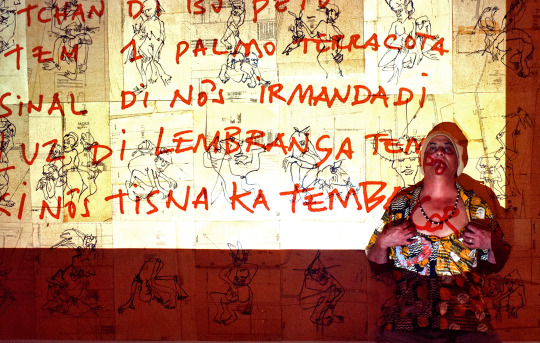 TCHAN DI BU PETU
TEM 1 PALMO TERRACOTA
SINAL DI NÔS IRMANDADI
LUZ DI LEMBRANÇA TEN
KI NÔS TISNA KA TEMBA